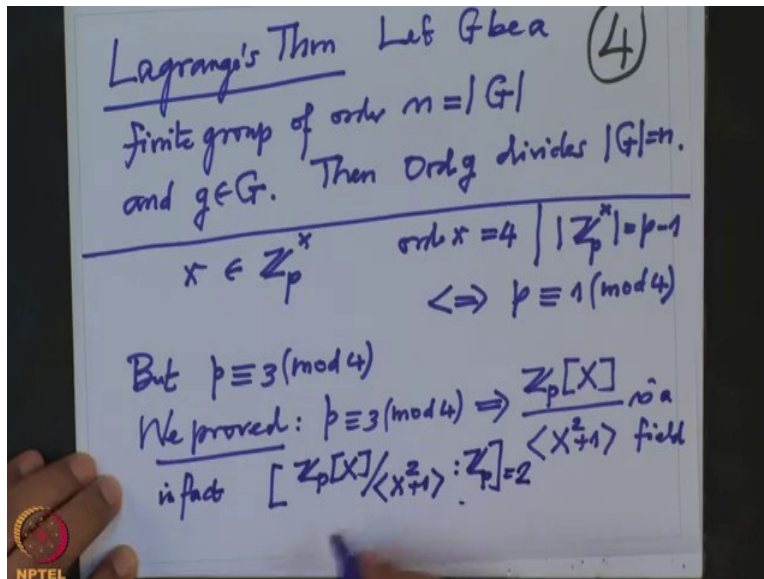 Lagrange's Thm Let G be a
④
finite group of order n = |G|
and g ∈ G. Then Ord g divides |G| = n.
x ∈ ℤₚˣ ord x = 4 | |ℤₚˣ| = p-1
<=> p ≡ 1 (mod 4)
But p ≡ 3 (mod 4)
We proved: p ≡ 3 (mod 4) => ℤₚ[X]/<X²+1> is a field
in fact [ℤₚ[X]/<X²+1> : ℤₚ] = 2
NPTEL